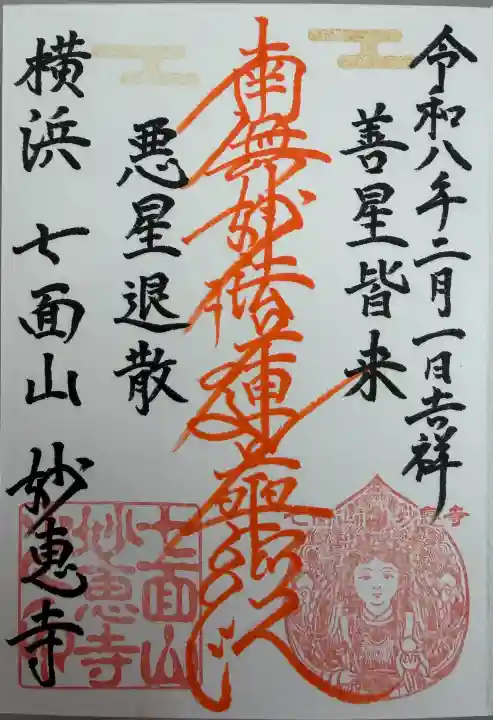 令和八年二月一日吉祥
善星皆来
南無妙法蓮華経
悪星退散
横浜 七面山 妙恵寺
七面山
妙恵寺